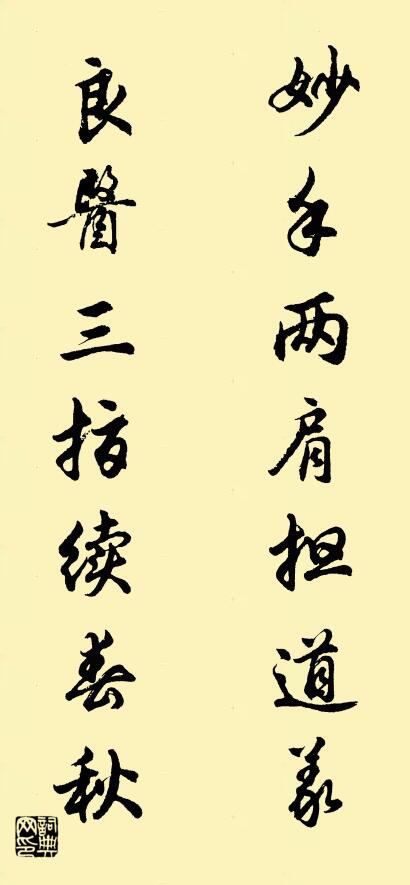 妙手两肩担道義
良醫三指续春秋
詞典网印